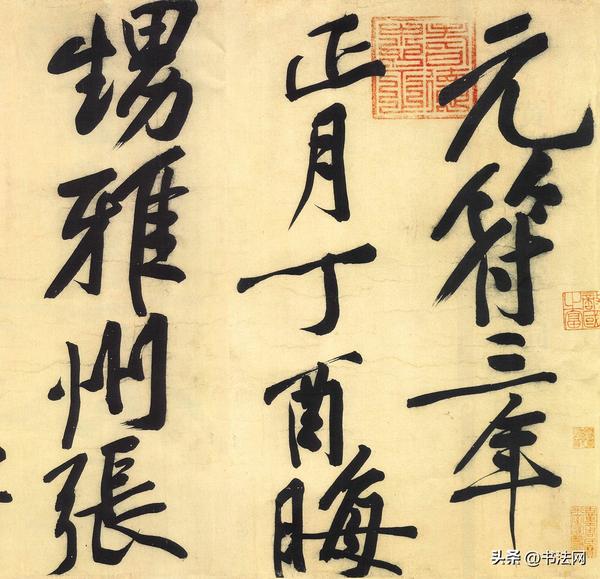 元符三年
正月丁酉晦
甥雅州張
头条 @书法网